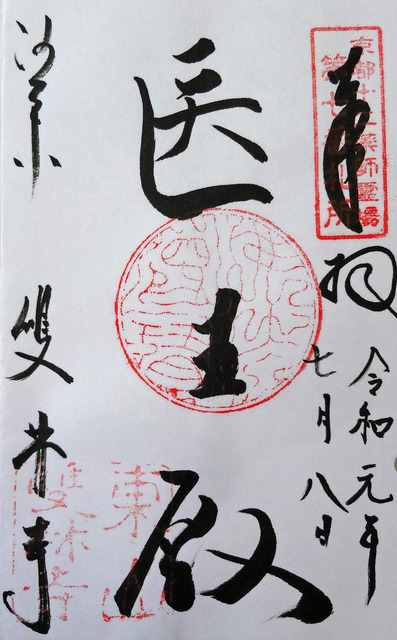 京都十二薬師霊場
第七番札所
奉拝
令和元年
七月八日
医王殿
洛東
雙林寺
東山
雙林寺